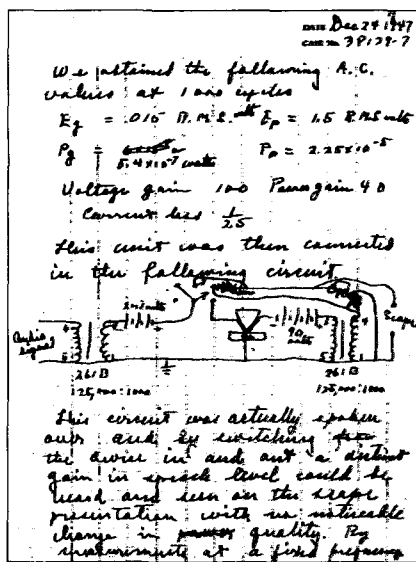 DATE Dec 24 1947
CASE No. 38139-7
We attained the following A.C.
values at 1000 cycles
Eg = .015 R.M.S. volts Ep = 1.5 R.M.S. volts
Pg = 5.4 x 10^-7 watts Pp = 2.25 x 10^-5
Voltage gain 100 Power gain 40
Current loss 1/25
This unit was then connected
in the following circuit
Audio signal
volts
90 volts
Scope
261B
125,000:1000
261B
125,000:1000
This circuit was actually spoken
over and by switching
the device in and out a distinct
gain in speech level could be
heard and seen on the scope
presentation with no noticeable
change in quality. By
measurements at a fixed frequency